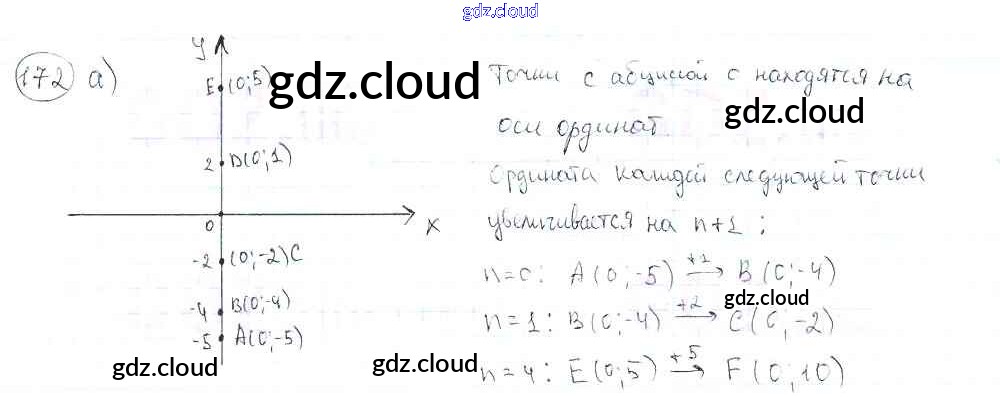 gdz.cloud
gdz.cloud
172 а)
y
E (0; 5)
gdz.cloud
2 D(0; 1)
0
x
-2 (0; -2) C
-4 B(0; -4)
-5 A(0; -5)
gdz.cloud
Точки с абциссой 0 находятся на
gdz.cloud
оси ординат.
Ордината каждой следующей точки
увеличивается на n+1:
n=0: A(0; -5) +1→ B(0; -4)
gdz.cloud
n=1: B(0; -4) +2→ C(0; -2)
n=4: E(0; 5) +5→ F(0; 10)
gdz.cloud